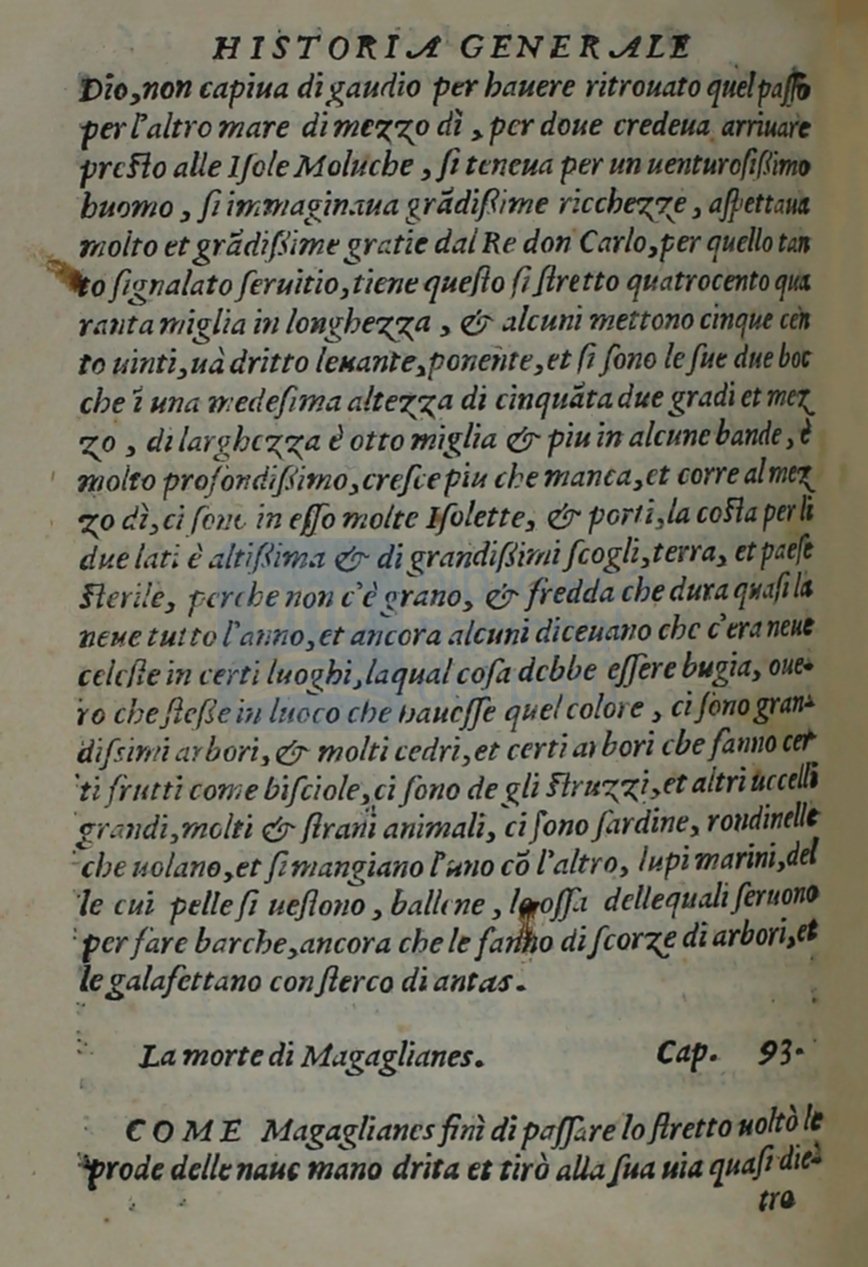 HISTORIA GENERALE
Dio, non capiua di gaudio per hauere ritrouato quel paſſo
per l'altro mare di mezzo dì, per doue credeua arriuare
preſto alle Iſole Moluche, ſi teneua per un uenturoſiſſimo
huomo, ſi immaginaua grãdiſſime ricchezze, aſpettaua
molto et grãdiſſime gratie dal Re don Carlo, per quello tan
to ſignalato ſeruitio, tiene queſto ſi ſtretto quatrocento qua
ranta miglia in longhezza, & alcuni mettono cinque cen
to uinti, uà dritto leuante, ponente, et ſi ſono le ſue due boc
che ĩ una medeſima altezza di cinquãta due gradi et mez
zo, di larghezza è otto miglia & piu in alcune bande, è
molto profondiſſimo, creſce piu che manca, et corre al mez
zo dì, ci ſono in eſſo molte Iſolette, & porti, la coſta per li
due lati è altiſſima & di grandiſſimi ſcogli, terra, et paeſe
ſterile, perche non c'è grano, & fredda che dura quaſi la
neue tutto l'anno, et ancora alcuni diceuano che c'era neue
celeſte in certi luoghi, laqual coſa debbe eſſere bugia, oue-
ro che ſteſſe in luoco che haueſſe quel colore, ci ſono gran-
diſsimi arbori, & molti cedri, et certi arbori che fanno cer
ti frutti come biſciole, ci ſono de gli ſtruzzi, et altri uccelli
grandi, molti & ſtrani animali, ci ſono ſardine, rondinelle
che uolano, et ſi mangiano l'uno cõ l'altro, lupi marini, del
le cui pelle ſi ueſtono, ballene, le oſſa dellequali ſeruono
per fare barche, ancora che le fanno di ſcorze di arbori, et
le galafettano con ſterco di antas.
La morte di Magaglianes. Cap. 93.
COME Magaglianes finì di paſſare lo ſtretto uoltò le
prode delle naue mano drita et tirò alla ſua uia quaſi die-
tro